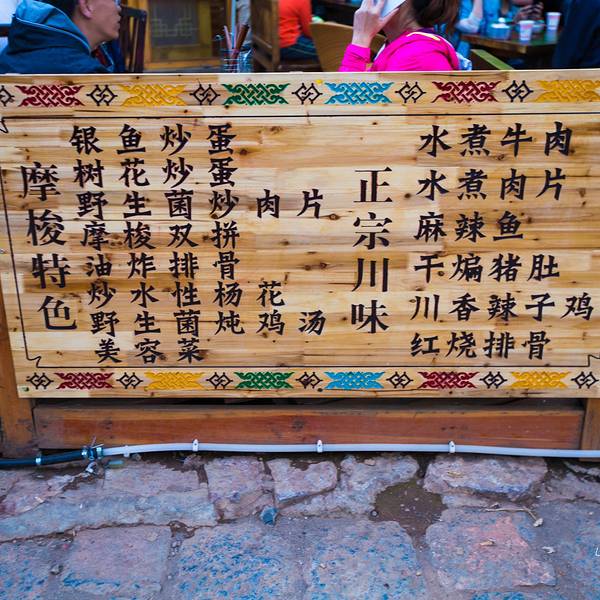 摩梭特色
银鱼炒蛋
树花炒蛋
野生菌炒肉片
摩梭双拼
油炸排骨
炒水性杨花
野生菌炖鸡汤
美容菜
正宗川味
水煮牛肉
水煮肉片
麻辣鱼
干煸猪肚
川香辣子鸡
红烧排骨